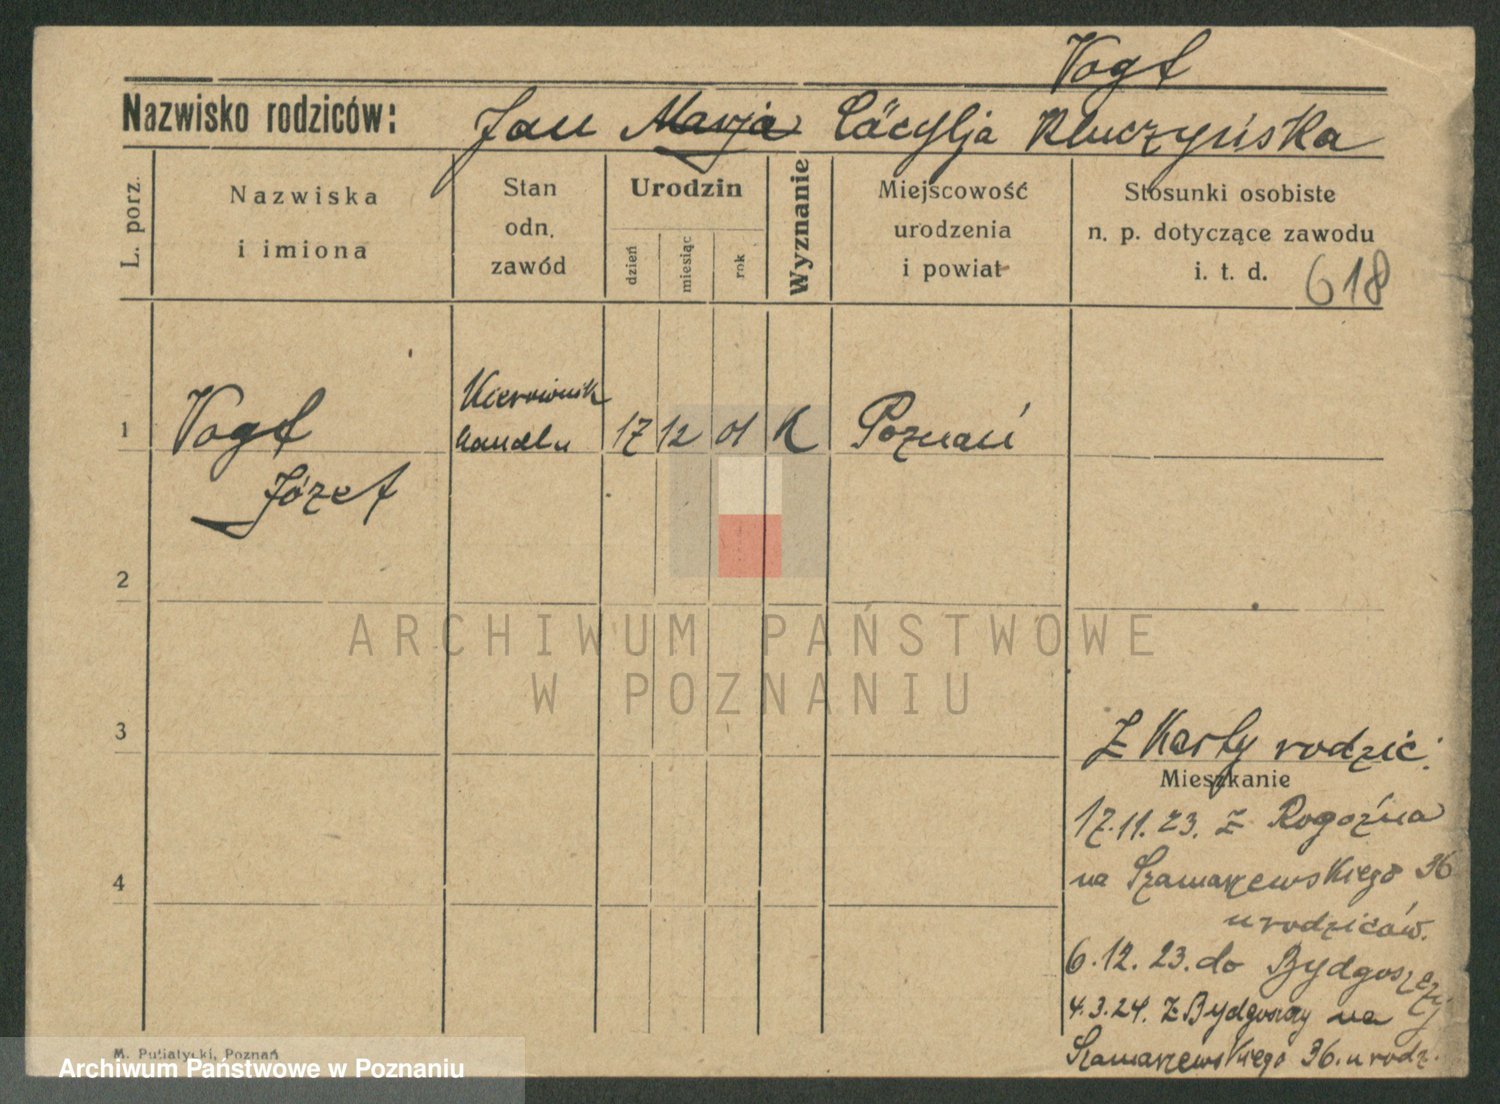 Vogt
Nazwisko rodziców: Jan Marja Cäcylja Kluczyńska
L. porz.
Nazwiska
i imiona
Stan
odn.
zawód
Urodzin
dzień
miesiąc
rok
Wyznanie
Miejscowość
urodzenia
i powiat
Stosunki osobiste
n. p. dotyczące zawodu
i. t. d.
618
1 Vogt Kierownik handlu 17 12 01 K Poznań
Józef
2
ARCHIWUM PAŃSTWOWE
W POZNANIU
3
Z Karty rodzic.
Mieszkanie
17.11.23. Z Rogoźna
4
na Szamarzewskiego 36
u rodziców.
6.12.23. do Bydgoszczy
4.3.24. Z Bydgoszczy na
Szamarzewskiego 36. u rodz.
M. Putiatycki, Poznań
Archiwum Państwowe w Poznaniu